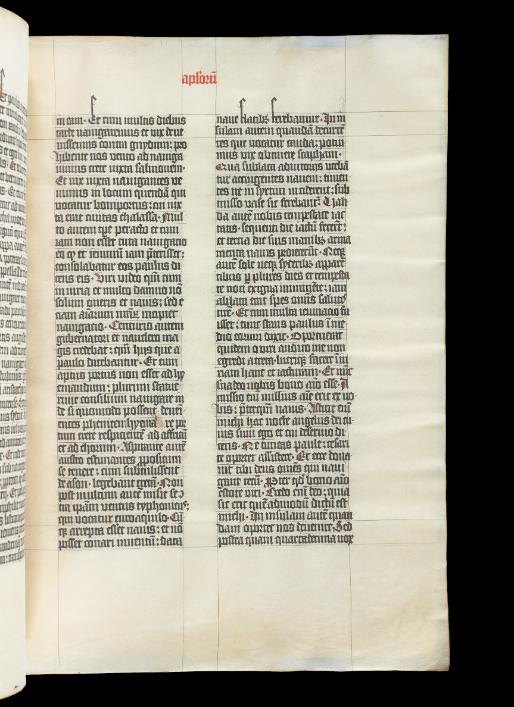 aploru
in eam. Et cum multis diebus
tarde nauigaremus et vix deue
nissemus contra gnydum: pro
hibente nos vento ad nauiga
uimus crete iuxta salmonem.
Et vix iuxta nauigantes ve
nimus in locum quendā qui
vocatur boniportus: cui iux
ta erat ciuitas thalassa. Mul
to autem tpe peracto et cum
iam non esset tuta nauigatio
eo qꝫ et ieiuniū iam pterisset:
consolabatur eos paulus di
cens eis. Viri video qm̄ cum
iniuria et multo damno nō
solum oneris et nauis: sed e
ciam aīarum nrarū incipiet
nauigatio. Centurio autem
gubernatori et nauclero ma
gis credebat: qm̄ hijs que a
paulo dicebantur. Et cum
aptus portus non esset ad hy
emandum: plurimi statue
runt consilium nauigare in
de si quomodo possent deueni
entes phenicen hyemare por
tum crete respicientē ad affricū
et ad chorum. Aspirante autē
austro estimantes propositum
se tenere: cum sustulissent
de ason. legebant cretā. Non
post multum autē misit se 
tra ipam ventus typhonicus
qui vocatur euroaquilo. Cū
qꝫ arrepta esset nauis: et nō
posset conari in ventū: data
naue flatibꝫ ferebamur. In in
sulam autem quandā decurrē
tes que vocatur cauda: potui
mus vix obtinere scapham.
Qua sublata adiutorijs vteba
tur accingentes nauem: timen
tes ne in syrtim inciderent: sub
misso vase sic ferebant. Vali
da autē nobis tempestate iac
tatis. sequenti die iactū fecert:
et tercia die suis manibꝫ arma
menta nauis proiecerūt. Neqꝫ
autē sole neqꝫ syderibꝫ apparē
tibus p plures dies et tempesta
te non exigua imminēte: iam
ablata erat spes omnis salutis
nrē. Et cum multa ieiunatio fu
isset: tunc stans paulus ī me
dio eorum dixit. Oportebat
quidem o viri audito me non
egredi a creta lucriqꝫ facere iniu
riam hanc et iacturam. Et nūc
suadeo vobis bono aīo esse. A
missio em̄ nullius aīe erit ex vo
bis: preterqm̄ nauis. Astitit em̄
michi hac nocte angelus dei cu
ius sum ego et cui deseruio di
cens. Ne timeas paule: cesari
te oportet assistere. Et ecce dona
uit tibi deus omēs qui naui
gant tecū. Propter qd bono aīo
estote viri. Credo em̄ deo: quia
sic erit quēadmodū dictū est
michi. In insulam autē quan
dam oportet nos deuenire. Sed
postea quam quartadecima nox